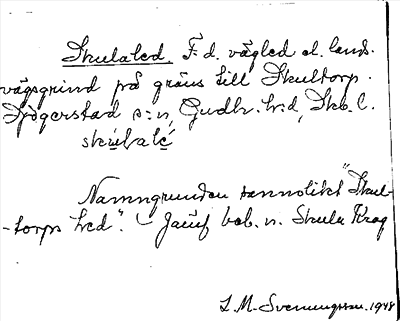 Skulaled. F. d. vägled el. lands-
vägsgrind på gräns till Skultorp.
s:n, Gudh. h:d, Skb. l.
skúlalé
Namngrunden sannolikt "Skul-
-torps led". - Jämf beb. n. Skula Krog
L. M. Svenungsson. 1948